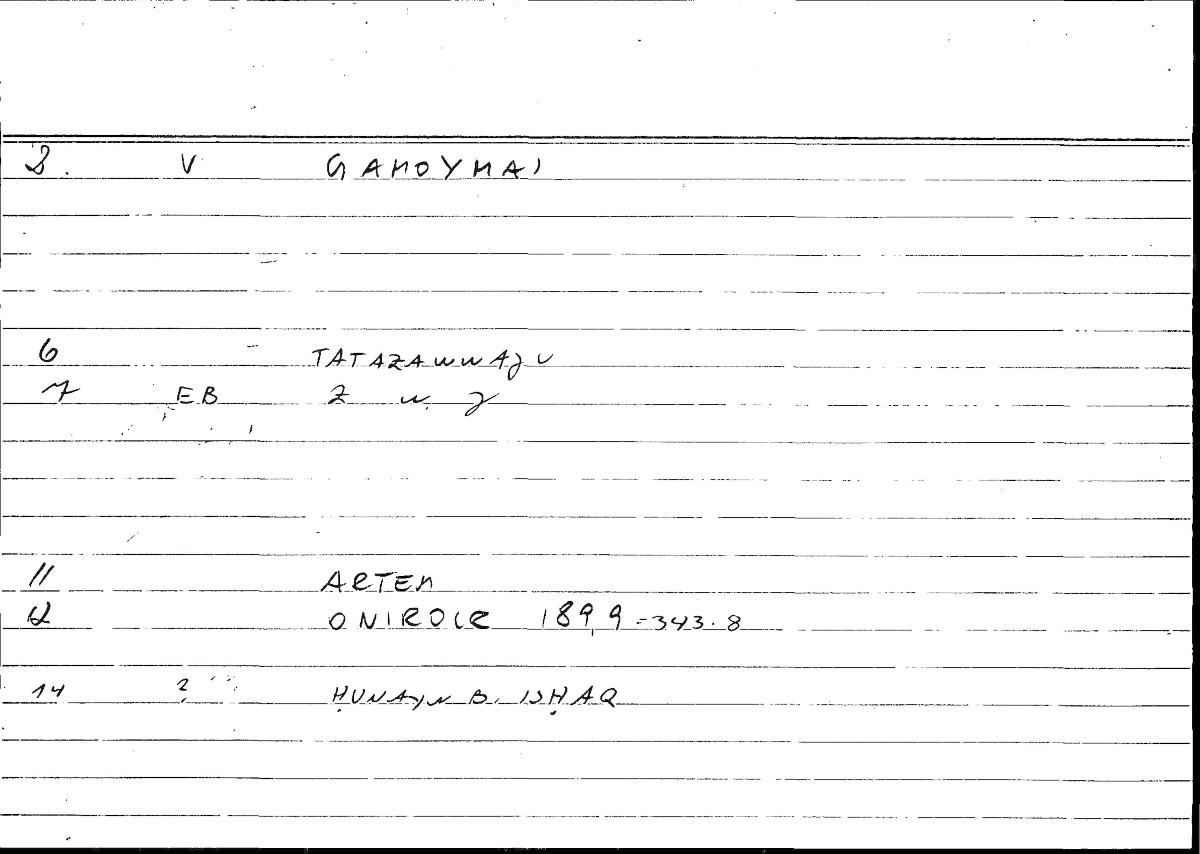 2. V GAMOYMAI
6 TATAZAWWAJU
7 EB Z W J
11 ARTEM
12 ONIROCR 189,9 = 343.8
14 2 ḤUNAYN B. ISḤAQ